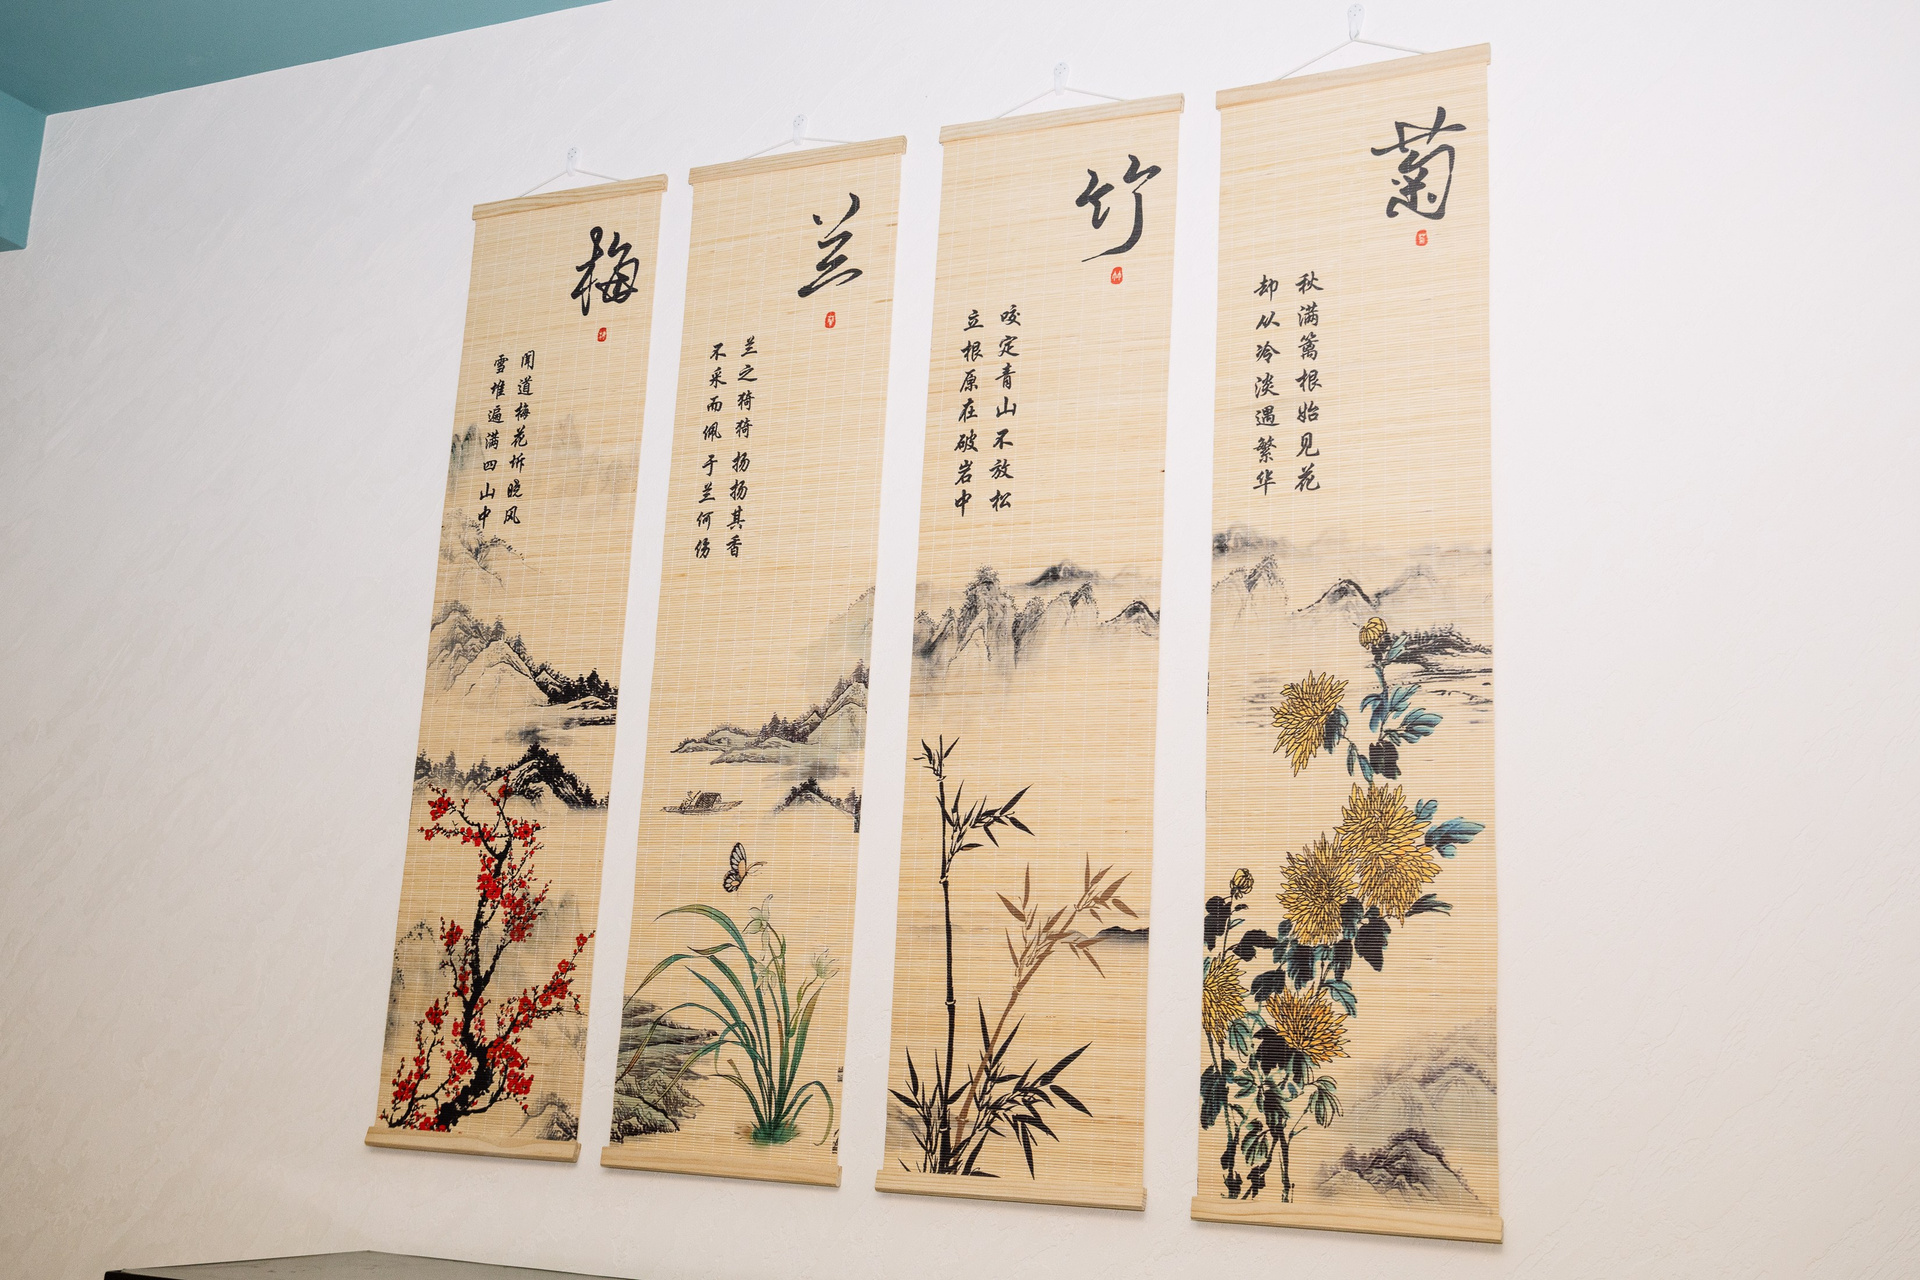 梅
闻道梅花坼晓风
雪堆遍满四山中
兰
兰之猗猗 扬扬其香
不采而佩 于兰何伤
竹
咬定青山不放松
立根原在破岩中
菊
秋满篱根始见花
却从冷淡遇繁华